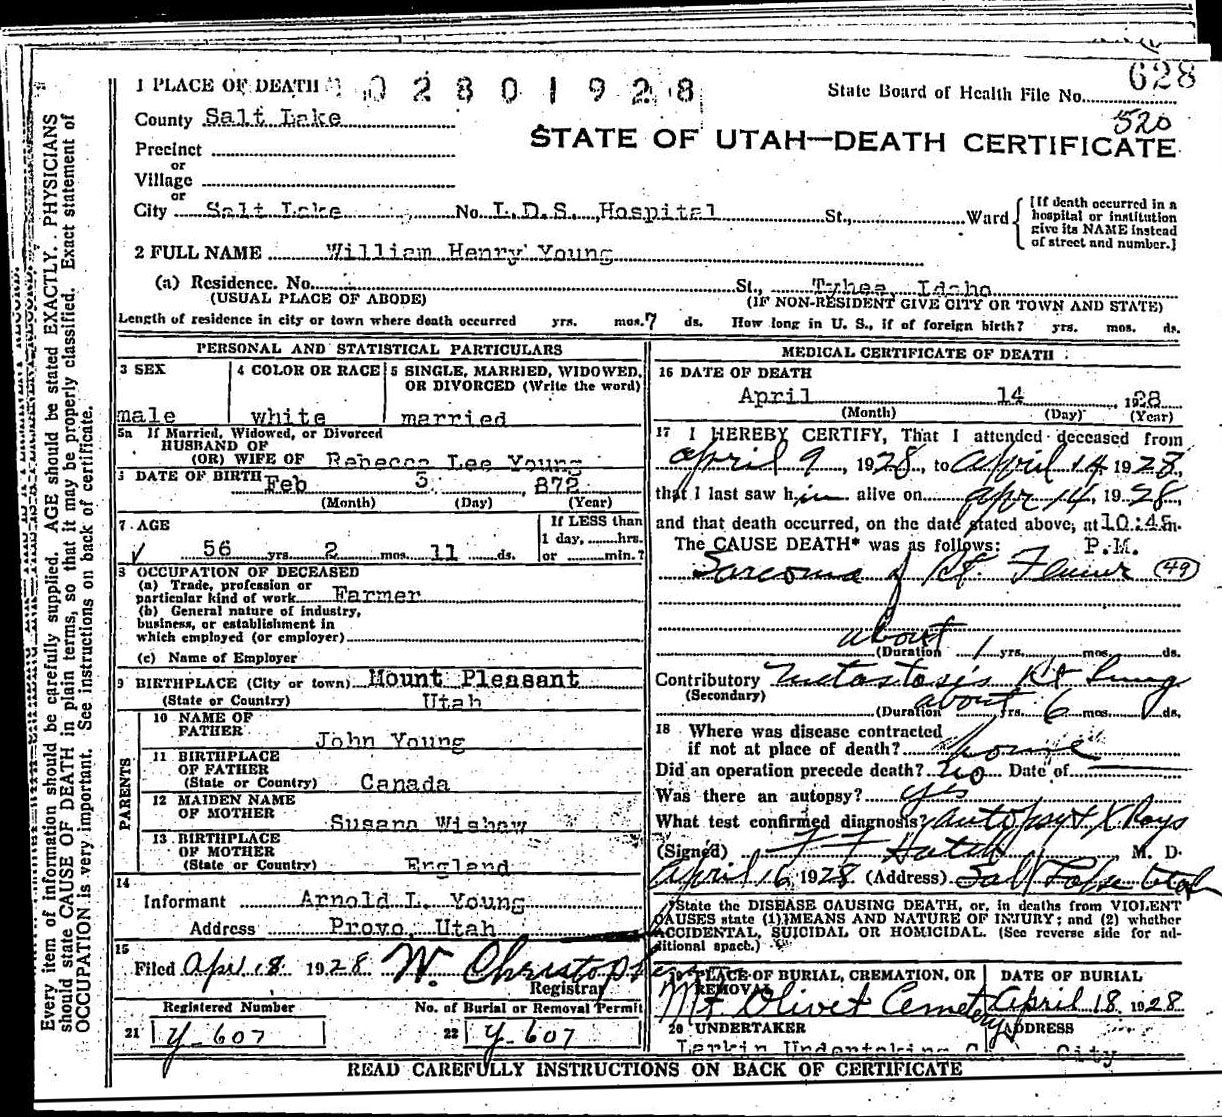 1 PLACE OF DEATH 0 2 8 0 1 9 2 8
State Board of Health File No. 628
520
County Salt Lake
STATE OF UTAH—DEATH CERTIFICATE
Precinct
or
Village
or
City Salt Lake No. L.D.S. Hospital St., Ward
[If death occurred in a hospital or institution give its NAME instead of street and number.]
2 FULL NAME William Henry Young
(a) Residence. No. St., Tyhee, Idaho
(USUAL PLACE OF ABODE) (IF NON-RESIDENT GIVE CITY OR TOWN AND STATE)
Length of residence in city or town where death occurred yrs. mos. 7 ds. How long in U. S., if of foreign birth? yrs. mos. ds.
PERSONAL AND STATISTICAL PARTICULARS
3 SEX 4 COLOR OR RACE 5 SINGLE, MARRIED, WIDOWED, OR DIVORCED (Write the word)
male white married
5a If Married, Widowed, or Divorced
HUSBAND OF
(OR) WIFE OF Rebecca Lee Young
DATE OF BIRTH Feb 3, 872
(Month) (Day) (Year)
7 AGE If LESS than
1 day, hrs.
56 yrs. 2 mos. 11 ds. or min.?
8 OCCUPATION OF DECEASED
(a) Trade, profession or
particular kind of work Farmer
(b) General nature of industry,
business, or establishment in
which employed (or employer)
(c) Name of Employer
9 BIRTHPLACE (City or town) Mount Pleasant
(State or Country) Utah
PARENTS
10 NAME OF
FATHER John Young
11 BIRTHPLACE
OF FATHER
(State or Country) Canada
12 MAIDEN NAME
OF MOTHER Susana Wishaw
13 BIRTHPLACE
OF MOTHER
(State or Country) England
14
Informant Arnold L. Young
Address Provo, Utah
15
Filed Apr 18 1928 W. Christoph
Registrar
Registered Number No. of Burial or Removal Permit
21 Y-607 22 Y-607
MEDICAL CERTIFICATE OF DEATH
16 DATE OF DEATH
April 14, 1928
(Month) (Day) (Year)
17 I HEREBY CERTIFY, That I attended deceased from
April 9, 1928, to April 14, 1928,
that I last saw him alive on Apr 14, 1928
and that death occurred, on the date stated above, at 10:45 m.
The CAUSE DEATH* was as follows: P.M.
Sarcoma of Rt. Femur (49)
about
(Duration 1 yrs. mos. ds.
Contributory Metastasis Rt Lung
(Secondary) about
(Duration yrs. 6 mos. ds.
18 Where was disease contracted
if not at place of death? home
Did an operation precede death? no Date of
Was there an autopsy? yes
What test confirmed diagnosis? Autopsy & X Rays
(Signed) F F Hatch M. D.
April 16, 1928 (Address) Salt Lake Utah
*State the DISEASE CAUSING DEATH, or, in deaths from VIOLENT
CAUSES state (1) MEANS AND NATURE OF INJURY; and (2) whether
ACCIDENTAL, SUICIDAL OR HOMICIDAL. (See reverse side for ad-
ditional space.)
19 PLACE OF BURIAL, CREMATION, OR REMOVAL DATE OF BURIAL
Mt. Olivet Cemetery April 18 1928
20 UNDERTAKER ADDRESS
Larkin Undertaking C. City
READ CAREFULLY INSTRUCTIONS ON BACK OF CERTIFICATE
Every item of information should be carefully supplied. AGE should be stated EXACTLY. PHYSICIANS
should state CAUSE OF DEATH in plain terms, so that it may be properly classified. Exact statement of
OCCUPATION is very important. See instructions on back of certificate.